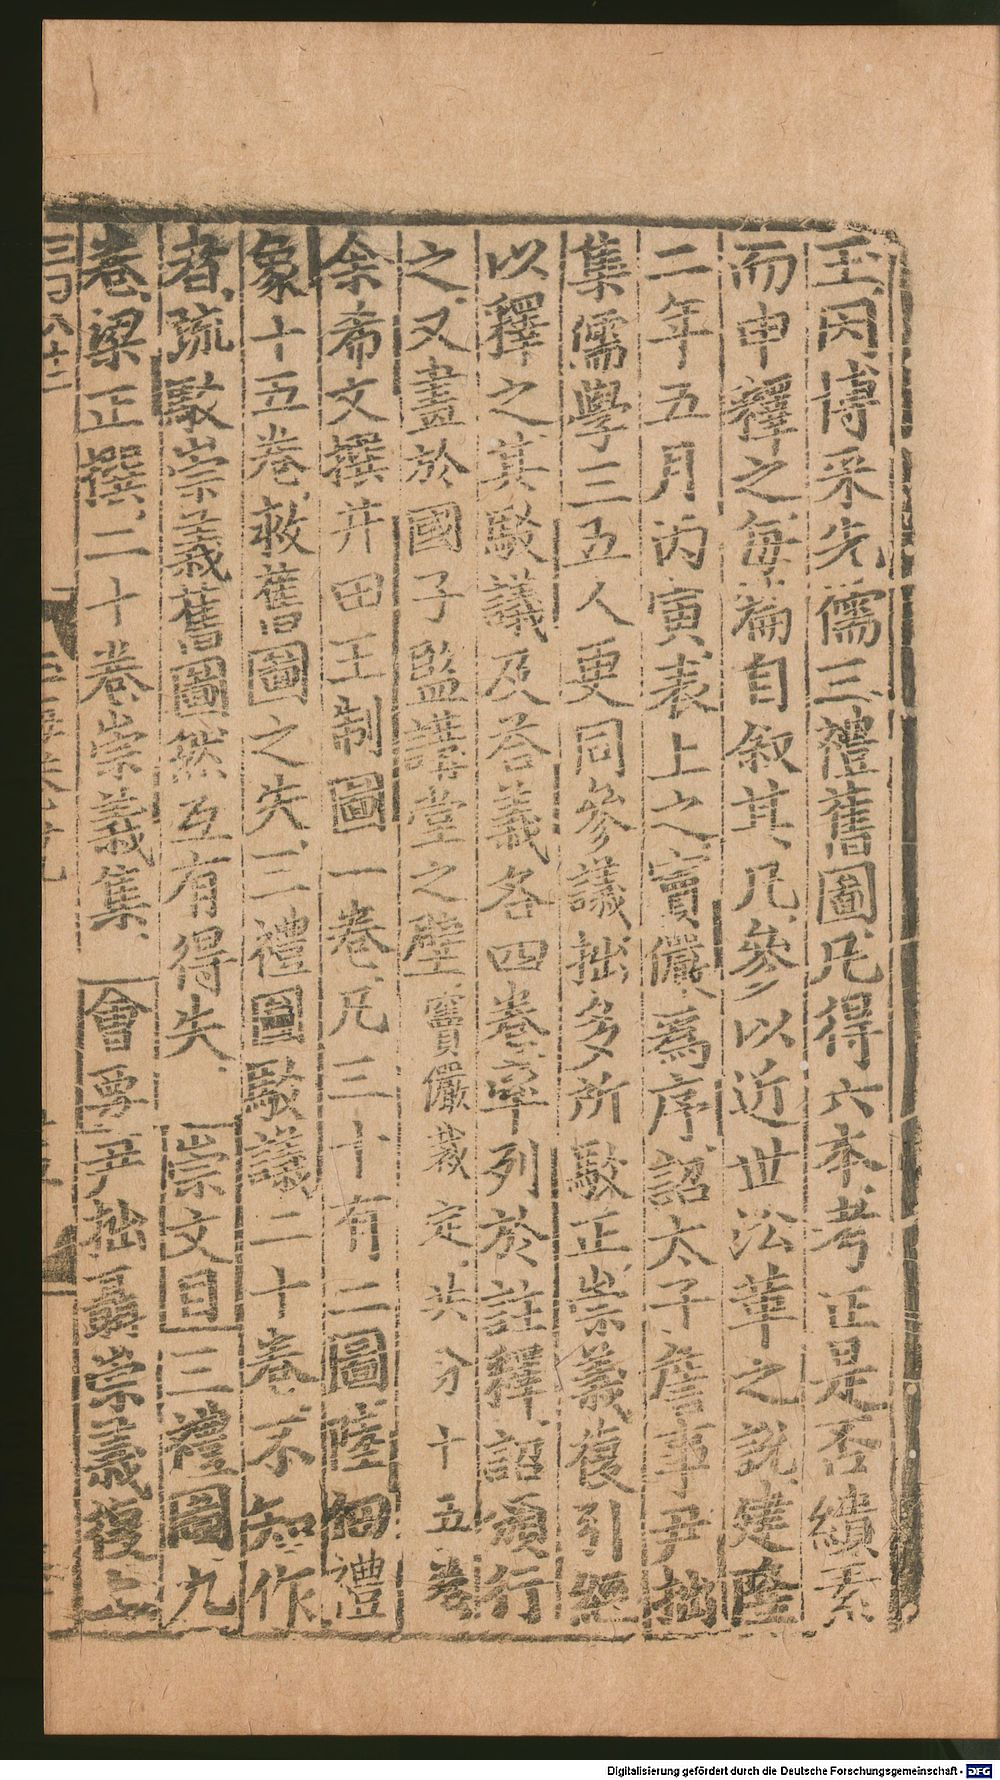 王因博采先儒三禮舊圖凡得六本考正是否繢素
而申釋之每篇自叙其凡參以近世㳒華之說建隆
二年五月丙寅表上之竇儼爲序詔太子詹事尹拙
集儒學三五人更同參議拙多所駁正崇義復引經
以釋之其駁議及荅義各四卷率列於註釋詔頒行
之又畫於國子監講堂之壁竇儼裁定共分十五卷
余希文撰井田王制圖一卷凡三十有二圖陸佃禮
象十五卷救舊圖之失三禮圖駁議二十卷不知作
者疏駁崇義舊圖然互有得失 崇文目三禮圖九
卷梁正撰二十卷崇義集 會要尹拙聶崇義復上
Digitalisierung gefördert durch die Deutsche Forschungsgemeinschaft - DFG